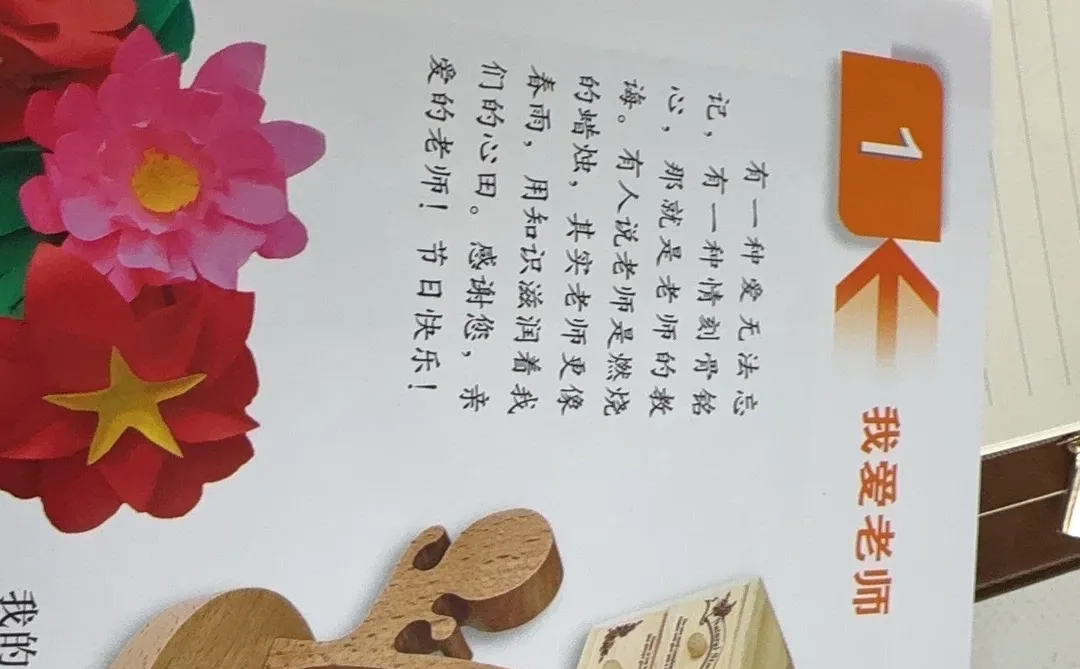 1
我爱老师
有一种爱无法忘
记，有一种情刻骨铭
心，那就是老师的教
诲。有人说老师是燃烧
的蜡烛，其实老师更像
春雨，用知识滋润着我
们的心田。感谢您，亲
爱的老师！节日快乐！
我的